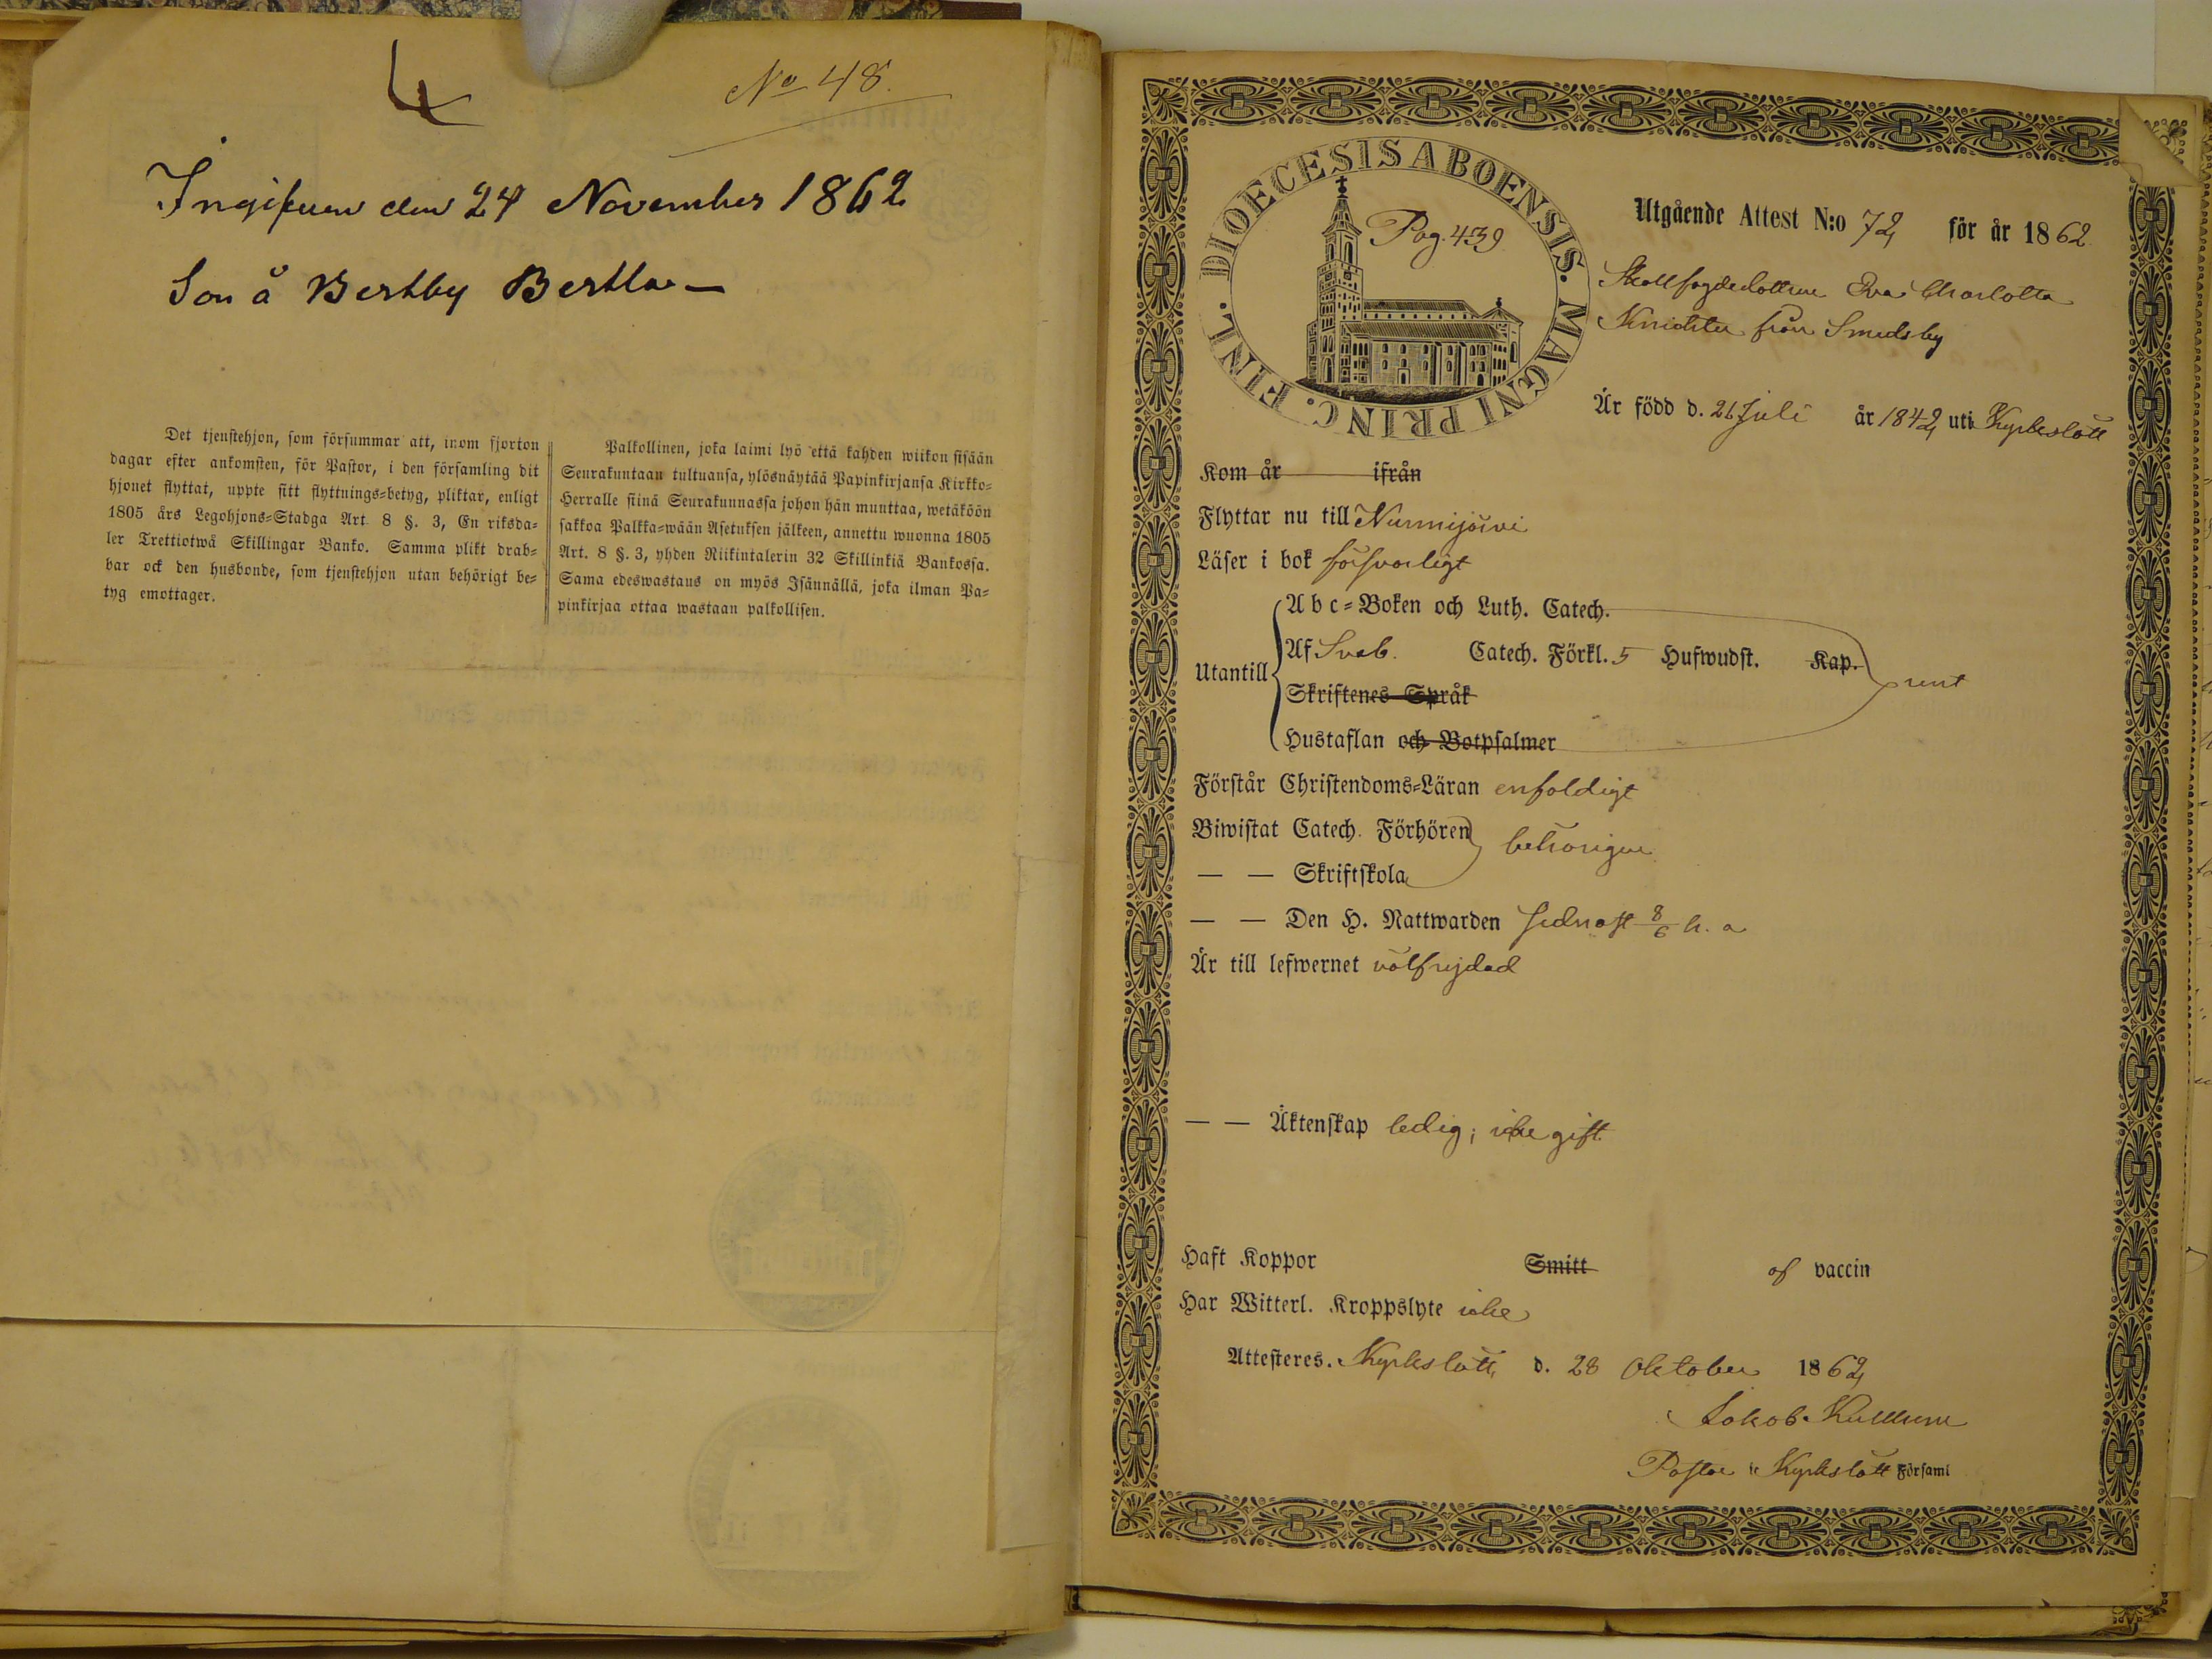 4
No 48.
Ingifven den 24 November 1862
Son å Bertby Bertlas
Det tjenstehjon, som försummar att, inom fjorton
dagar efter ankomsten, för Pastor, i den församling dit
hjonet flyttat, uppte sitt flyttnings-betyg, pliktar, enligt
1805 års Legohjons-Stadga Art. 8 §. 3, En riksda-
ler Trettiotwå Skillingar Banko. Samma plikt drab-
bar ock den husbonde, som tjenstehjon utan behörigt be-
tyg emottager.
Palkollinen, joka laimi lyö että kahden wiikon sisään
Seurakuntaan tultuansa, ylösnäytää Papinkirjansa Kirkko-
Herralle siinä Seurakunnassa johon hän muuttaa, wetäköön
sakkoa Palkka-wään Asetuksen jälkeen, annettu wuonna 1805
Art. 8 §. 3, yhden Riikintalerin 32 Skillinkiä Bankossa.
Sama edeswastaus on myös Isännällä, joka ilman Pa-
pinkirjaa ottaa wastaan palkollisen.
FINL. DIOECESIS ABOENSIS. MAGNI PRINC.
Pag. 439
Utgående Attest N:o 72, för år 1862
Skallfogdedottren Eva Charlotta
från Smedsby
Är född d. 26 Juli år 1842, uti Kyrkslätt
Kom år ifrån
Flyttar nu till Nurmijärvi
Läser i bok försvarligt
Utantill
Abc-Boken och Luth. Catech.
Af Sveb. Catech. Förkl. 5 Hufwudst. Kap.
rent
Skriftenes Språk
Hustaflan och Botpsalmer
Förstår Christendoms-Läran enfaldigt
Biwistat Catech. Förhören
behörigen
— — Skriftskola
— — Den H. Nattwarden sednast 8/6 h. a
Är till lefwernet välfrejdad
— — Äktenskap ledig; icke gift.
Haft Koppor Smitt af vaccin
Har Witterl. Kroppslyte icke
Attesteres. Kyrkslätt, d. 28 Oktober 1862,
Jakob
Pastor i Kyrkslätt Församl